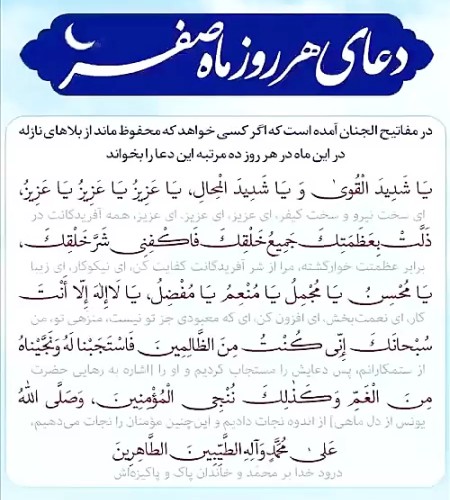 دعای هر روز ماه صفر
در مفاتیح الجنان آمده است که اگر کسی خواهد که محفوظ ماند از بلاهای نازله
در این ماه در هر روز ده مرتبه این دعا را بخواند
يَا شَدِيدَ الْقُوىٰ وَ يَا شَدِيدَ الْمِحالِ، يَا عَزِيزُ يَا عَزِيزُ يَا عَزِيزُ،
ای سخت نیرو و سخت کیفر، ای عزیز، ای عزیز، ای عزیز، همه آفریدگانت در
ذَلَّتْ بِعَظَمَتِكَ جَمِيعُ خَلْقِكَ فَاكْفِنِي شَرَّ خَلْقِكَ،
برابر عظمتت خوارگشته، مرا از شر آفریدگانت کفایت کن، ای نیکوکار، ای زیبا
يَا مُحْسِنُ يَا مُجْمِلُ يَا مُنْعِمُ يَا مُفْضِلُ، يَا لَا إِلٰهَ إِلّا أَنْتَ
کار، ای نعمت‌بخش، ای افزون کن، ای که معبودی جز تو نیست، منزهی تو، من
سُبْحانَكَ إِنِّى كُنْتُ مِنَ الظَّالِمِينَ فَاسْتَجَبْنا لَهُ وَنَجَّيْناهُ
از ستمکارانم، پس دعایش را مستجاب کردیم و او را [اشاره به رهایی حضرت
مِنَ الْغَمِّ وَكَذٰلِكَ نُنْجِى الْمُؤْمِنِينَ، وَصَلَّى اللّٰهُ
یونس از دل ماهی] از اندوه نجات دادیم و این‌چنین مؤمنان را نجات می‌دهیم،
عَلىٰ مُحَمَّدٍ وَآلِهِ الطَّيِّبِينَ الطَّاهِرِينَ
درود خدا بر محمّد و خاندان پاک و پاکیزه‌اش